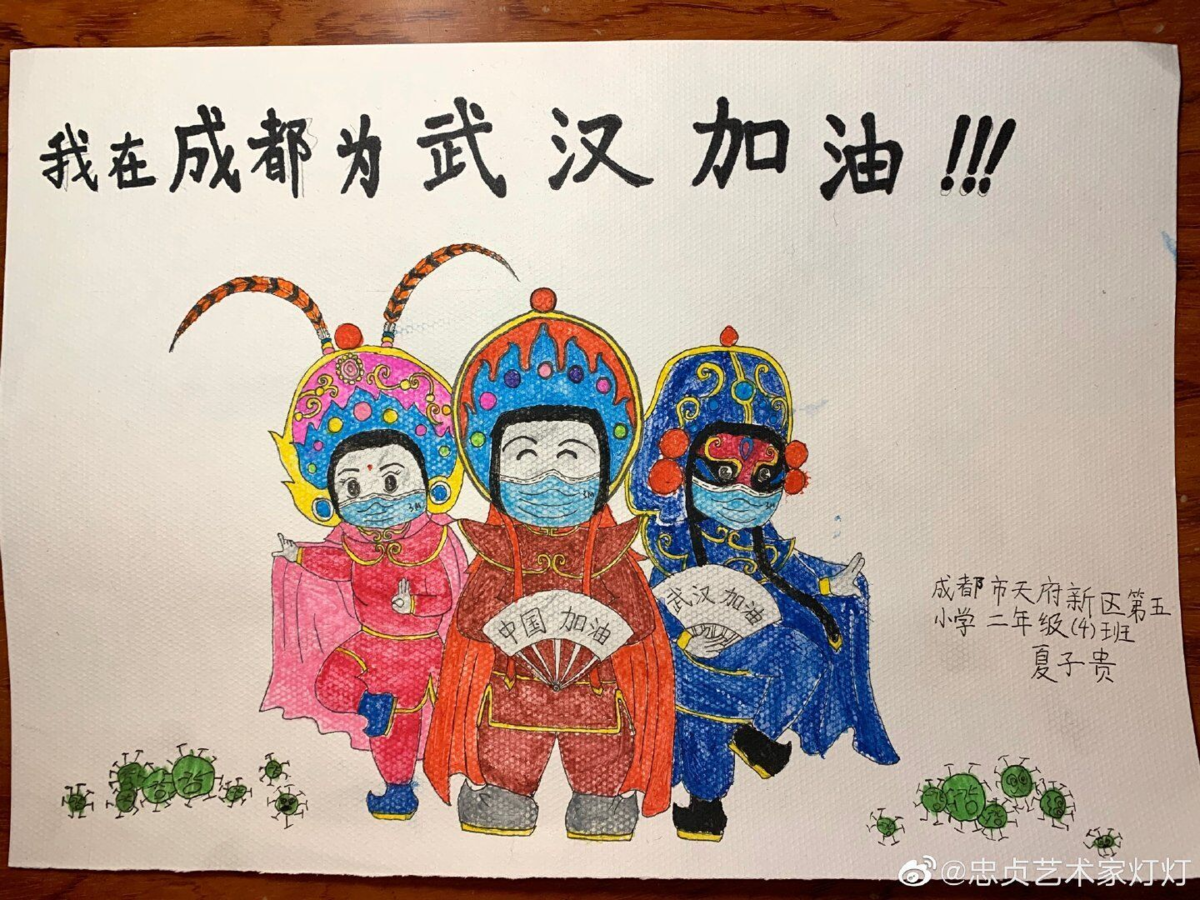 我在成都为武汉加油!!!
3M
3M
中国 加油
武汉加油
成都市天府新区第五
小学 二年级(4)班
夏子贵
@忠贞艺术家灯灯